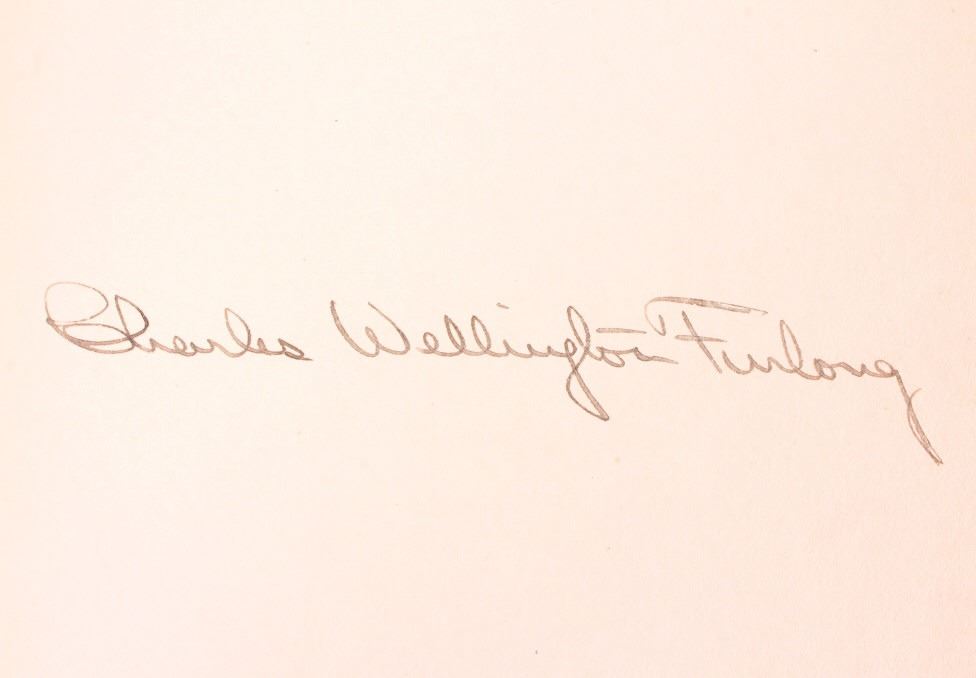 Charles Wellington Furlong